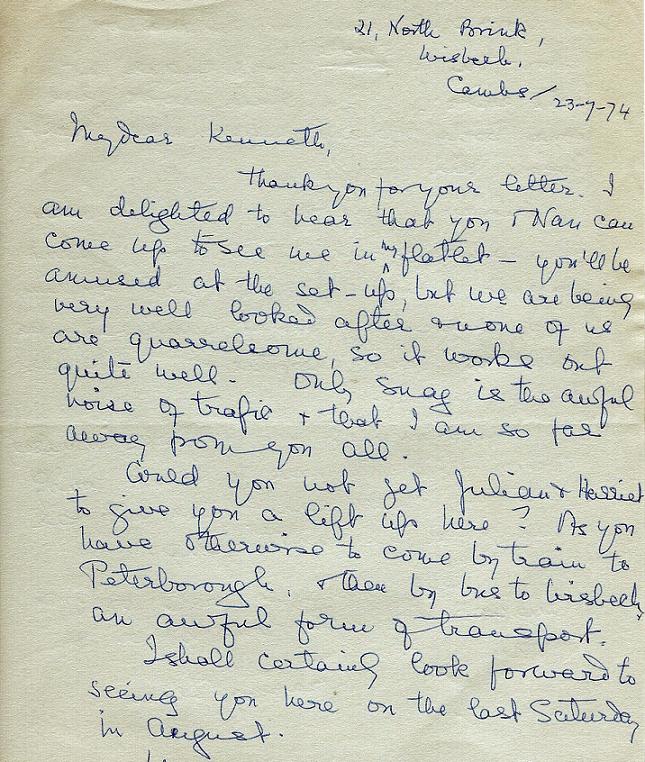 21, North Brink,
Wisbech,
Cambs/ 23-7-74
My dear Kenneth,
Thank you for your letter. I
am delighted to hear that you & Nan can
come up to see me in my flatlet – you'll be
amused at the set-up, but we are being
very well looked after & none of us
are quarrelsome, so it works out
quite well. Only snag is the awful
noise of trafic & that I am so far
away from you all.
Could you not get Julian & Harriet
to give you a lift up here? As you
have otherwise to come by train to
Peterborough, & then by bus to Wisbech,
an awful form of transport.
I shall certainly look forward to
seeing you here on the last Saturday
in August.